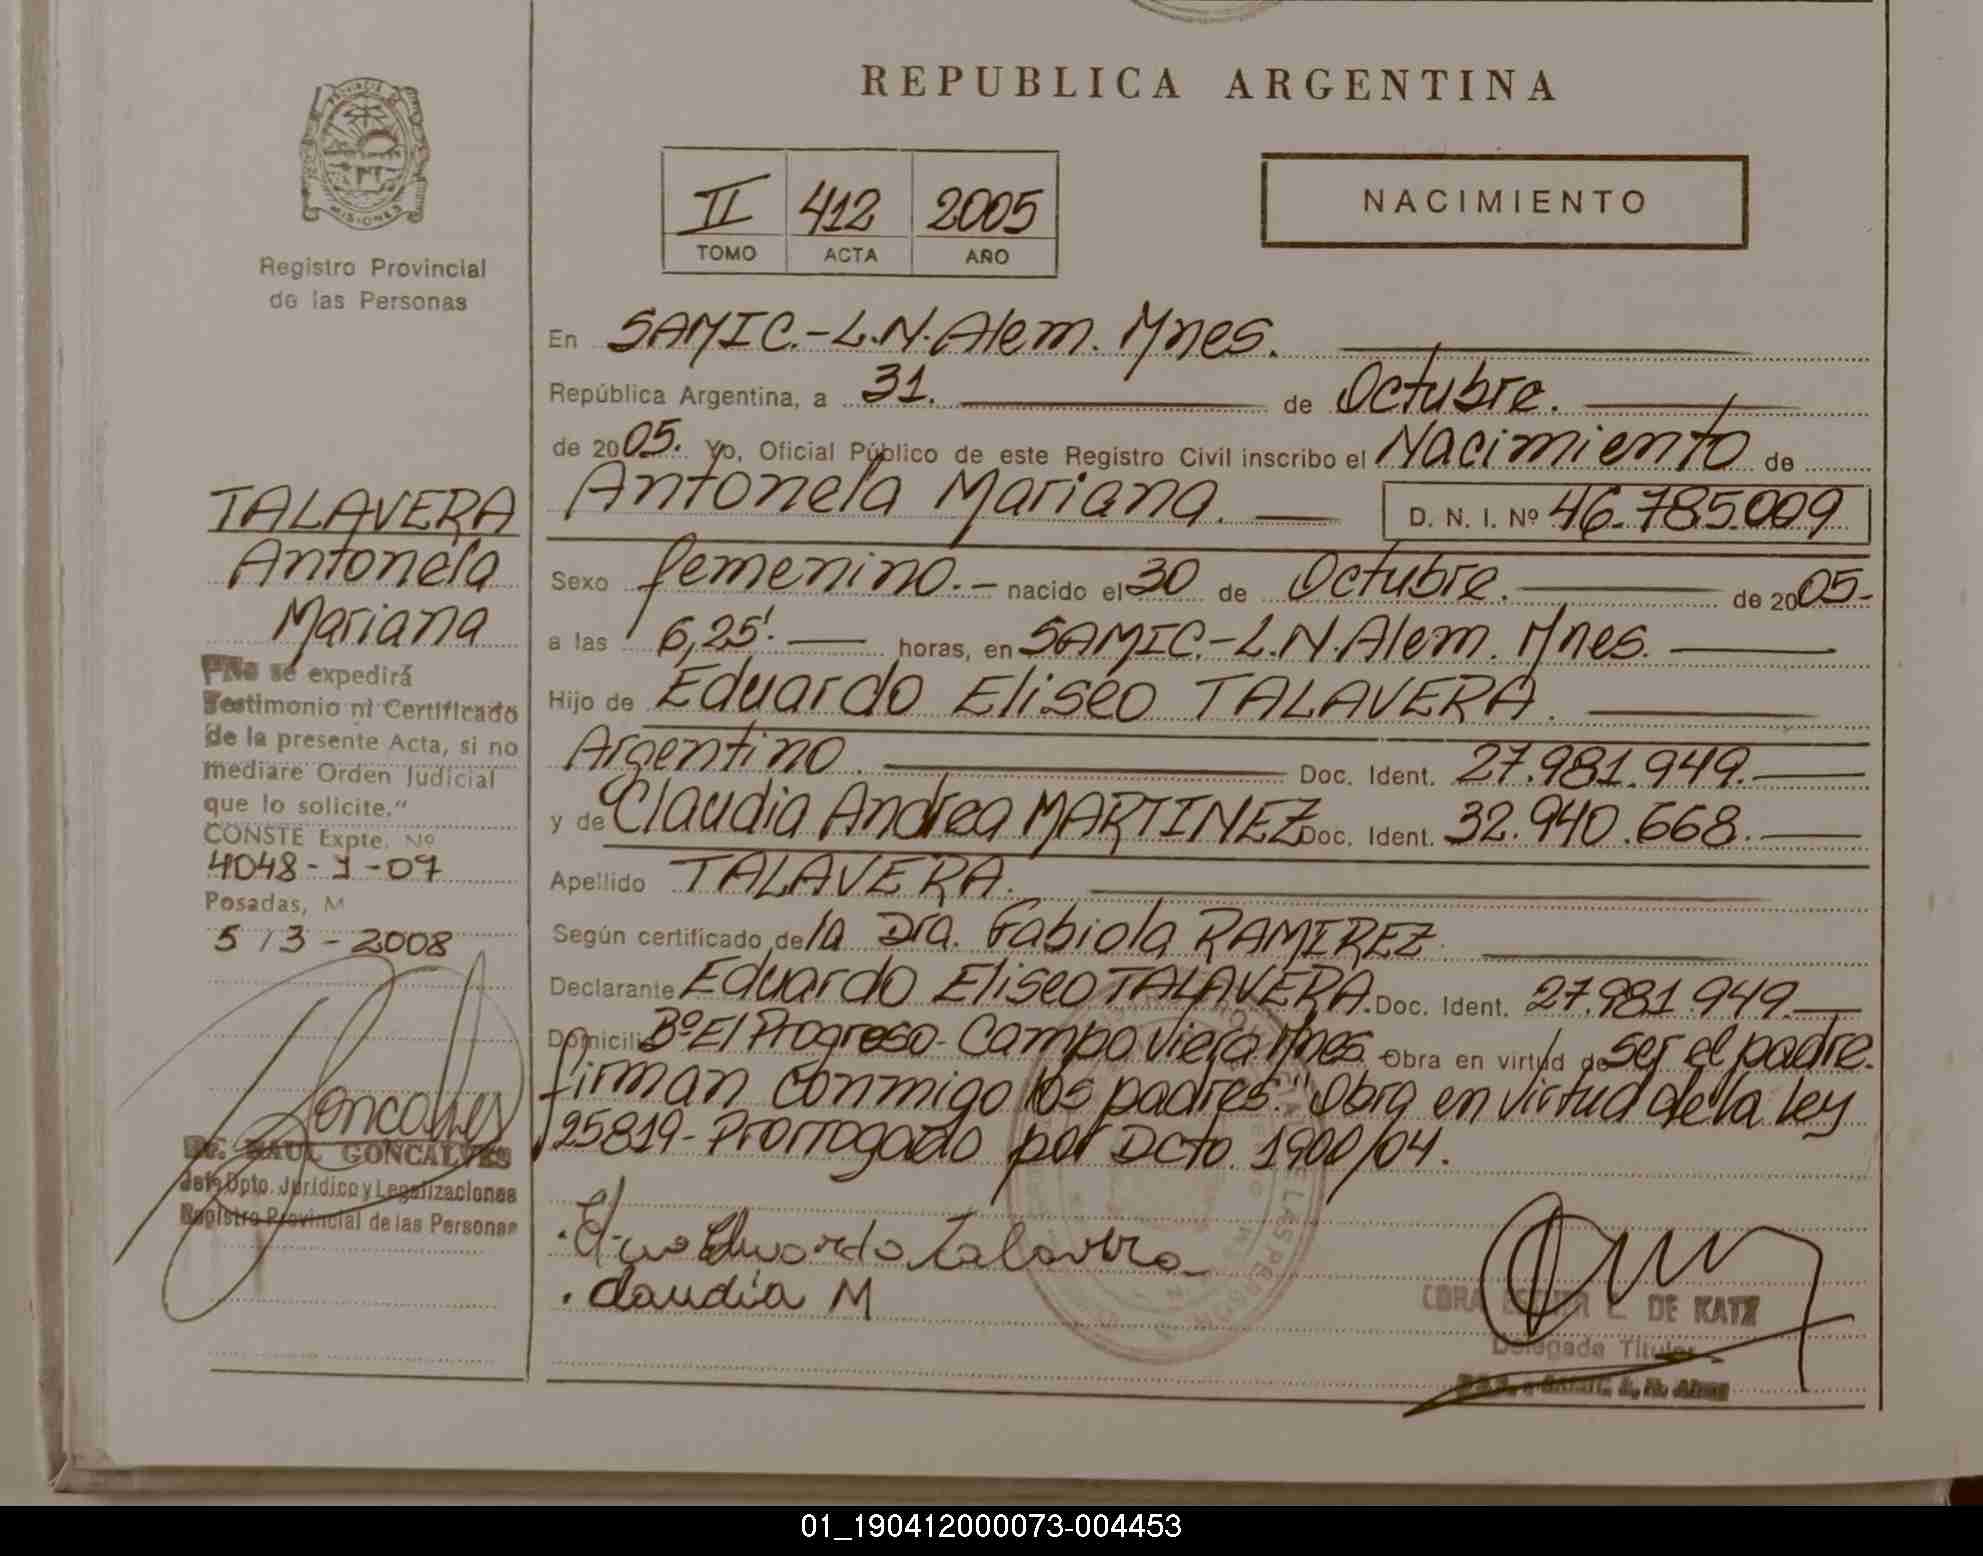 REPUBLICA ARGENTINA
PROVINCIA DE
MISIONES
Registro Provincial
de las Personas
II 412 2005
TOMO ACTA AÑO
NACIMIENTO
En SAMIC.-L.N.Alem. Mnes.
República Argentina, a 31. de Octubre.
de 2005. Yo, Oficial Público de este Registro Civil inscribo el Nacimiento de
Antonela Mariana. D. N. I. Nº 46.785.009
Sexo femenino.- nacido el 30 de Octubre. de 2005.-
a las 6,25'. horas, en SAMIC.-L.N.Alem. Mnes.
Hijo de Eduardo Eliseo TALAVERA.
Argentino. Doc. Ident. 27.981.949.
y de Claudia Andrea MARTINEZ Doc. Ident. 32.940.668.
Apellido TALAVERA.
Según certificado de la Dra. Fabiola RAMIREZ.
Declarante Eduardo Eliseo TALAVERA. Doc. Ident. 27.981.949.
Domicilio Bº El Progreso- Campo Viera Mnes. Obra en virtud de ser el padre.
firman conmigo los padres." Obra en virtud de la ley
25819- Prorrogado por Dcto. 1900/04.
Eduardo Talavera
Claudia M
DE KATZ
Delegada Titular
TALAVERA
Antonela
Mariana
"No se expedirá
Testimonio ni Certificado
de la presente Acta, si no
mediare Orden Judicial
que lo solicite."
CONSTE Expte. Nº
4048-J-07
Posadas, M
5/3-2008
Goncalves
Dr. RAUL GONCALVES
Jefe Dpto. Jurídico y Legalizaciones
Registro Provincial de las Personas
01_190412000073-004453